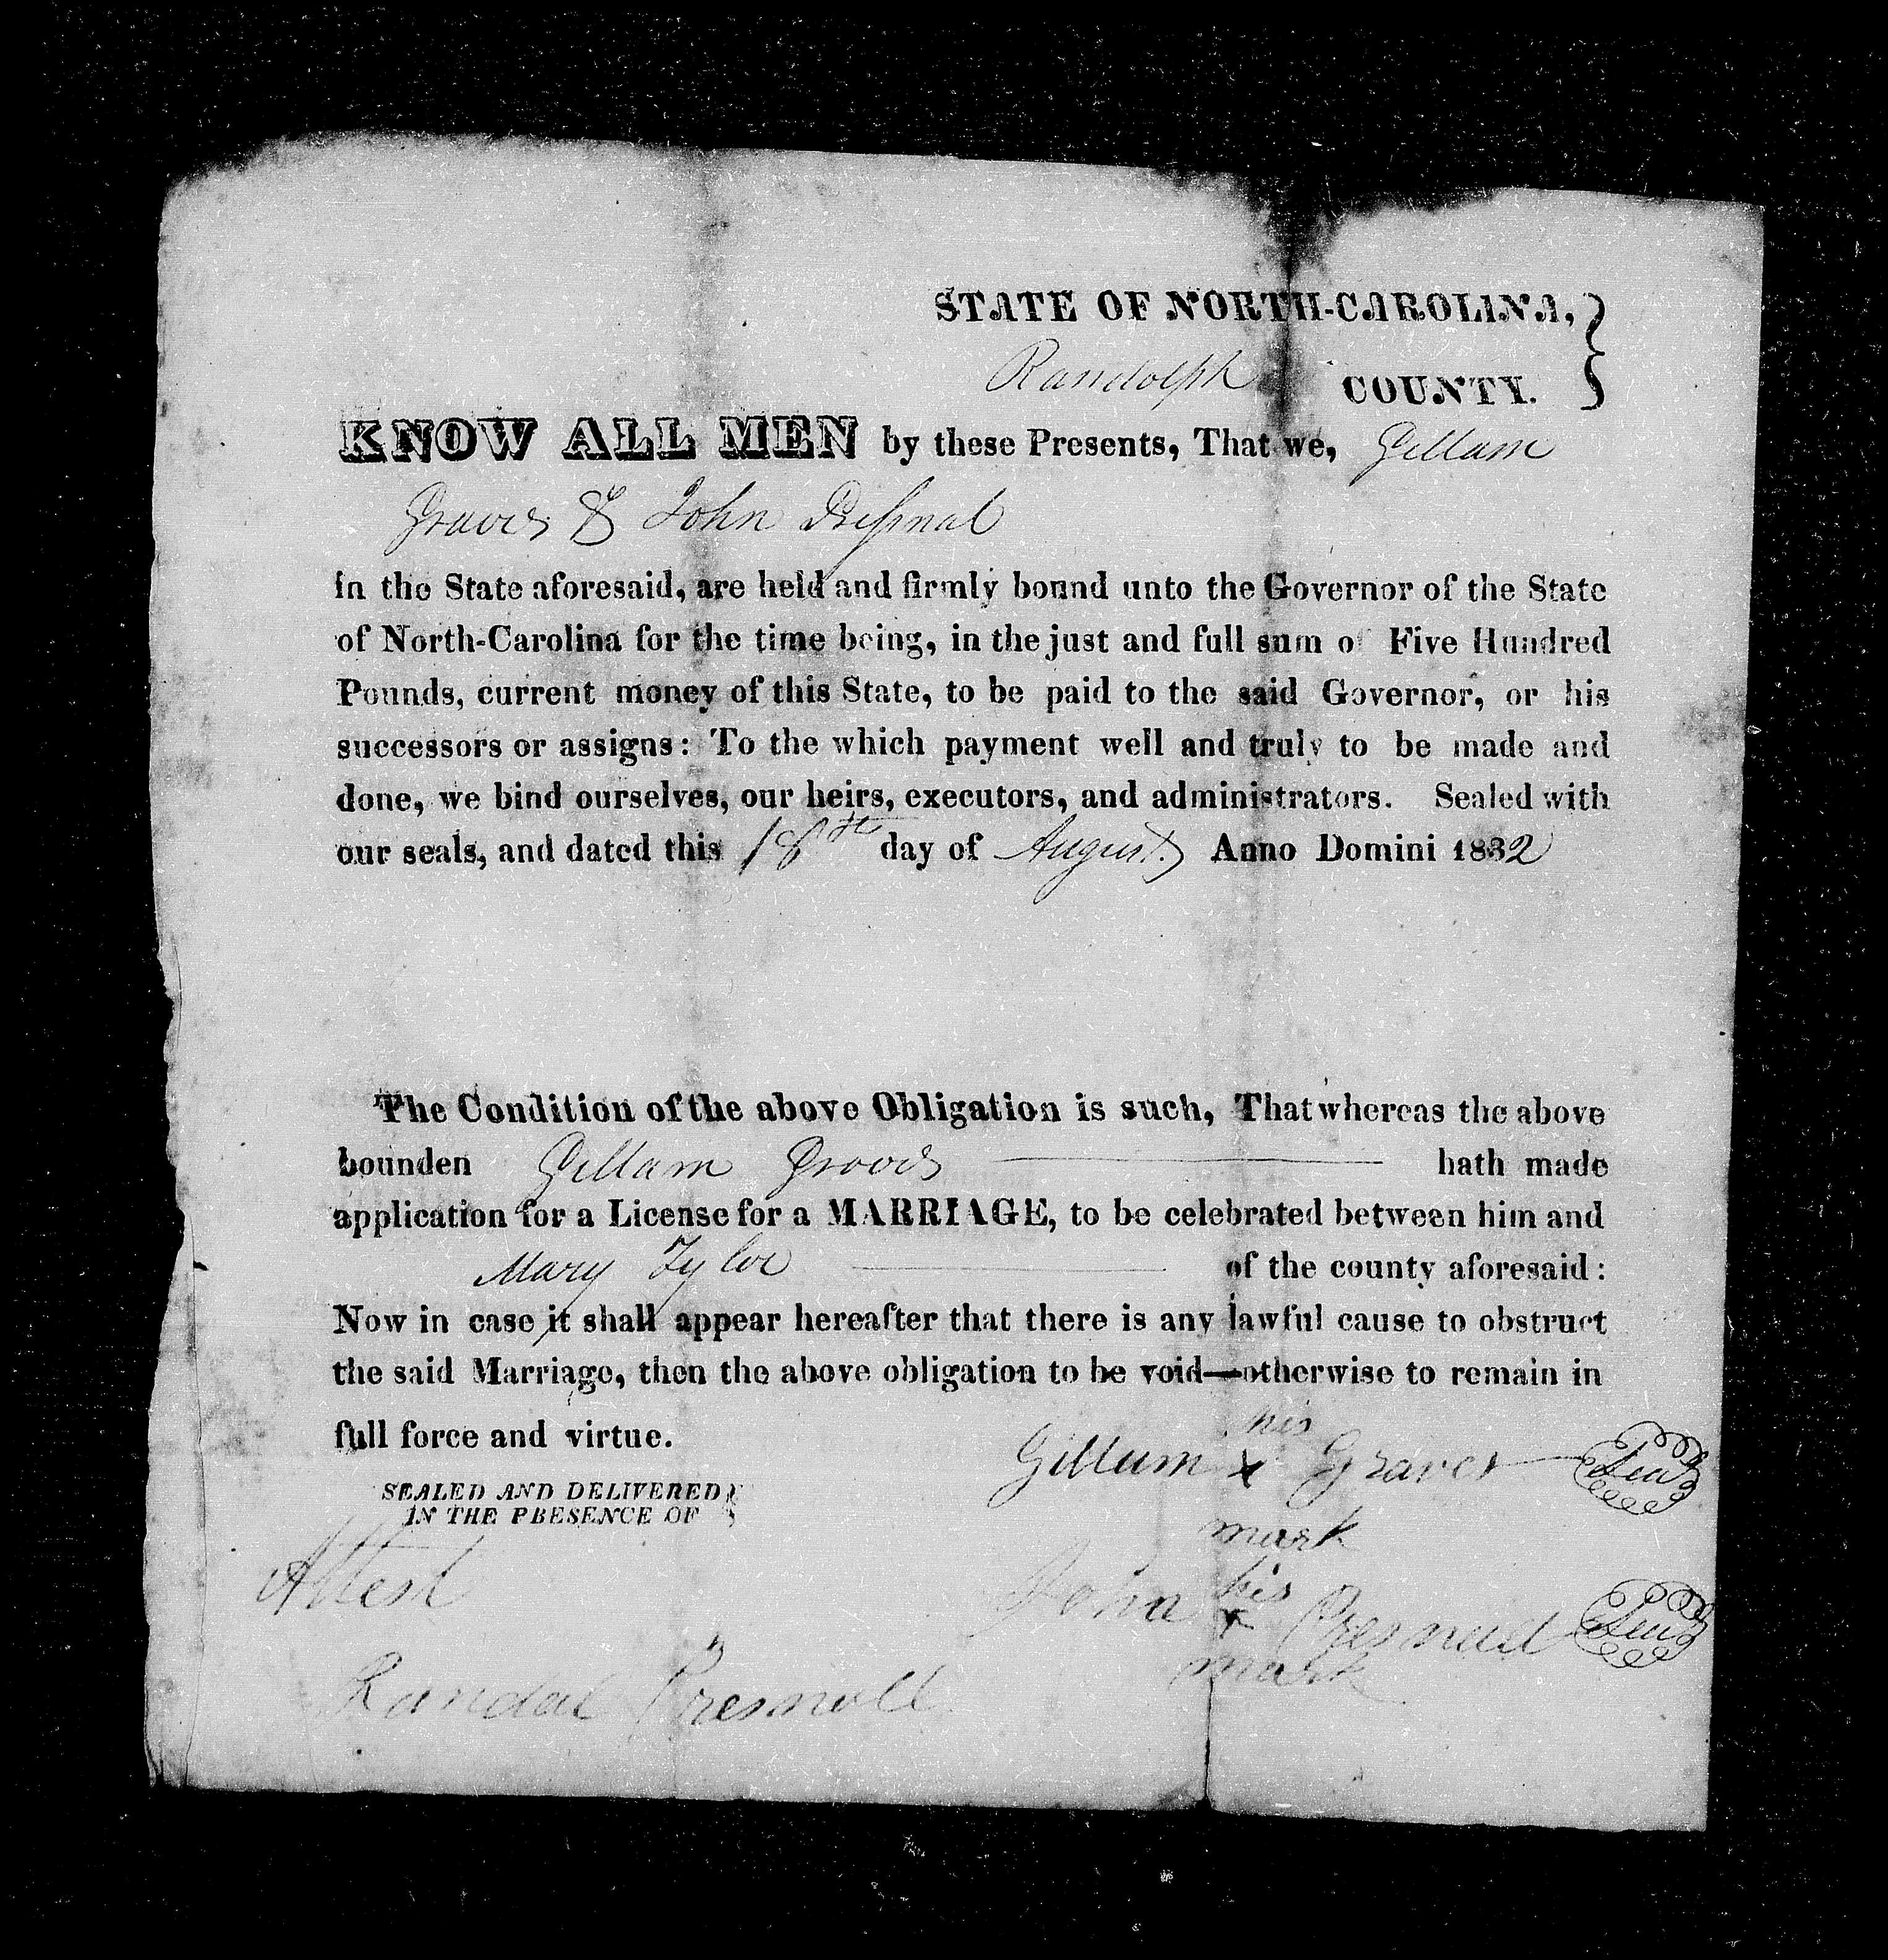 STATE OF NORTH-CAROLINA,
Randolph COUNTY.
KNOW ALL MEN by these Presents, That we, Gillam
Graves & John Presnal
in the State aforesaid, are held and firmly bound unto the Governor of the State
of North-Carolina for the time being, in the just and full sum of Five Hundred
Pounds, current money of this State, to be paid to the said Governor, or his
successors or assigns: To the which payment well and truly to be made and
done, we bind ourselves, our heirs, executors, and administrators. Sealed with
our seals, and dated this 18th day of August Anno Domini 1832
The Condition of the above Obligation is such, That whereas the above
bounden Gillam Graves hath made
application for a License for a MARRIAGE, to be celebrated between him and
Mary Tylor of the county aforesaid:
Now in case it shall appear hereafter that there is any lawful cause to obstruct
the said Marriage, then the above obligation to be void—otherwise to remain in
full force and virtue.
his
Gillum x Graves Seal
mark
SEALED AND DELIVERED
IN THE PRESENCE OF
Attest
his
John x Presnell Seal
mark
Randal Presnoll